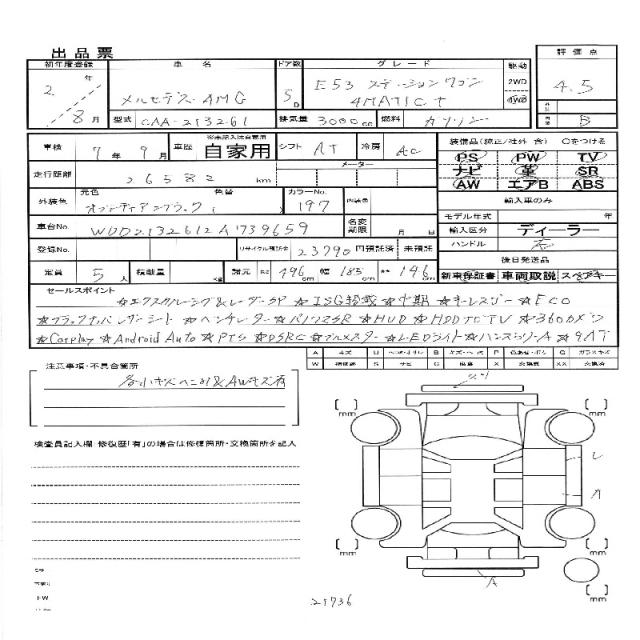 出品票
初年度登録 車名 ドア数 グレード 駆動 評価点
2 年 8 月 メルセデスAMG 5D E53 ステーションワゴン 4MATIC+ 2WD 4WD 4.5
型式 CAA-213261 排気量 3000cc 燃料 ガソリン B
車検 7年 9月 車歴 自家用 シフト AT 冷房 AC
装備品(純正/社外 含) ○をつける
PS PW TV
ナビ 革 SR
AW エアB ABS
走行距離 26582 km メーター
外装色 元色 オブシディアンブラック 色替 カラーNo. 197 内装色
輸入車のみ
モデル年式 年
車台No. WDD2132612A739659 名変期限 月 日
輸入区分 ディーラー
登録No. リサイクル預託金 23790 円預託済 未預託
ハンドル 右
定員 5人 積載量 諸元 長さ 496cm 幅 185cm 高 146cm
後日発送品
新車保証書 車両取説 スペアキー
セールスポイント
★エクスクルーシブ&レーダーSP ★ISG搭載 ★中期 ★キーレスゴー ★ECO
★ブラックナッパレザーシート ★ベンチレーター ★パノラマSR ★HUD ★HDDナビTV ★360°カメラ
★Carplay ★Android Auto ★PTS ★DSRC ★ブルメスター ★LEDライト ★ハンズフリーA ★9AT
注意事項・不具合箇所
各小キズヘコミ&AWキズ有
検査員記入欄・修復歴「有」の場合は修復箇所・交換箇所を記入
mm mm
レ
A
mm mm
A
21736